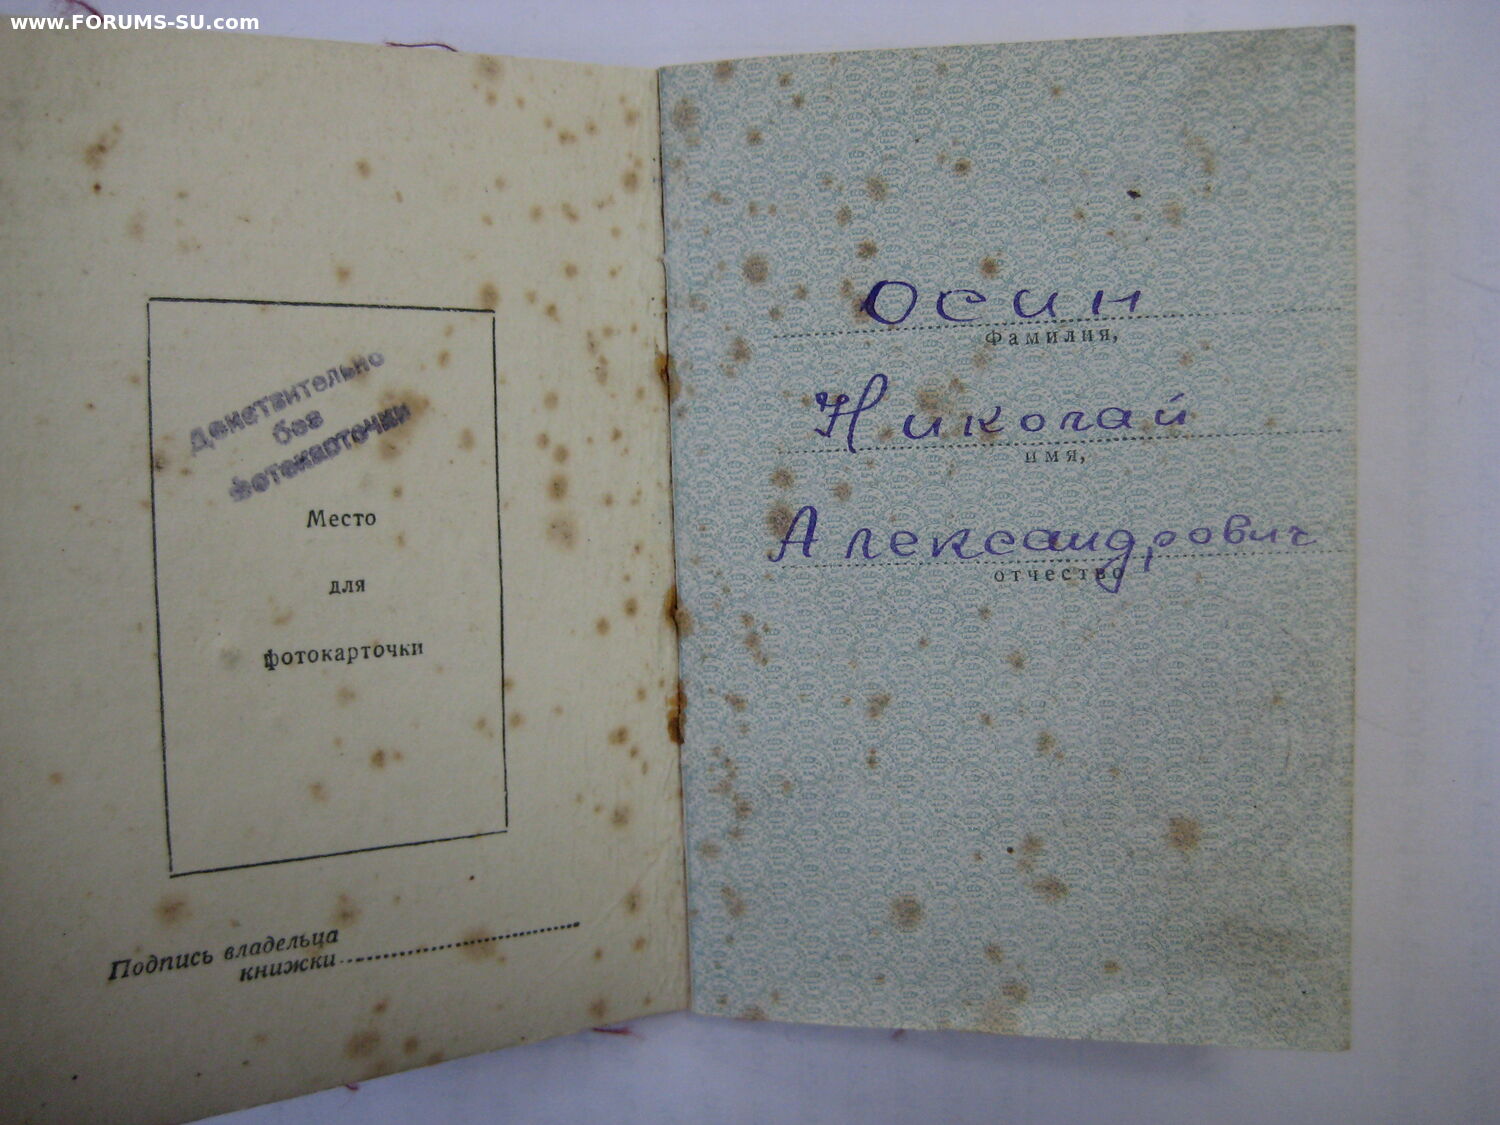 www.FORUMS-SU.com
Действительно
без
фотокарточки
Место
для
фотокарточки
Подпись владельца
книжки
Осин
Фамилия,
Николай
имя,
Александрович
отчество